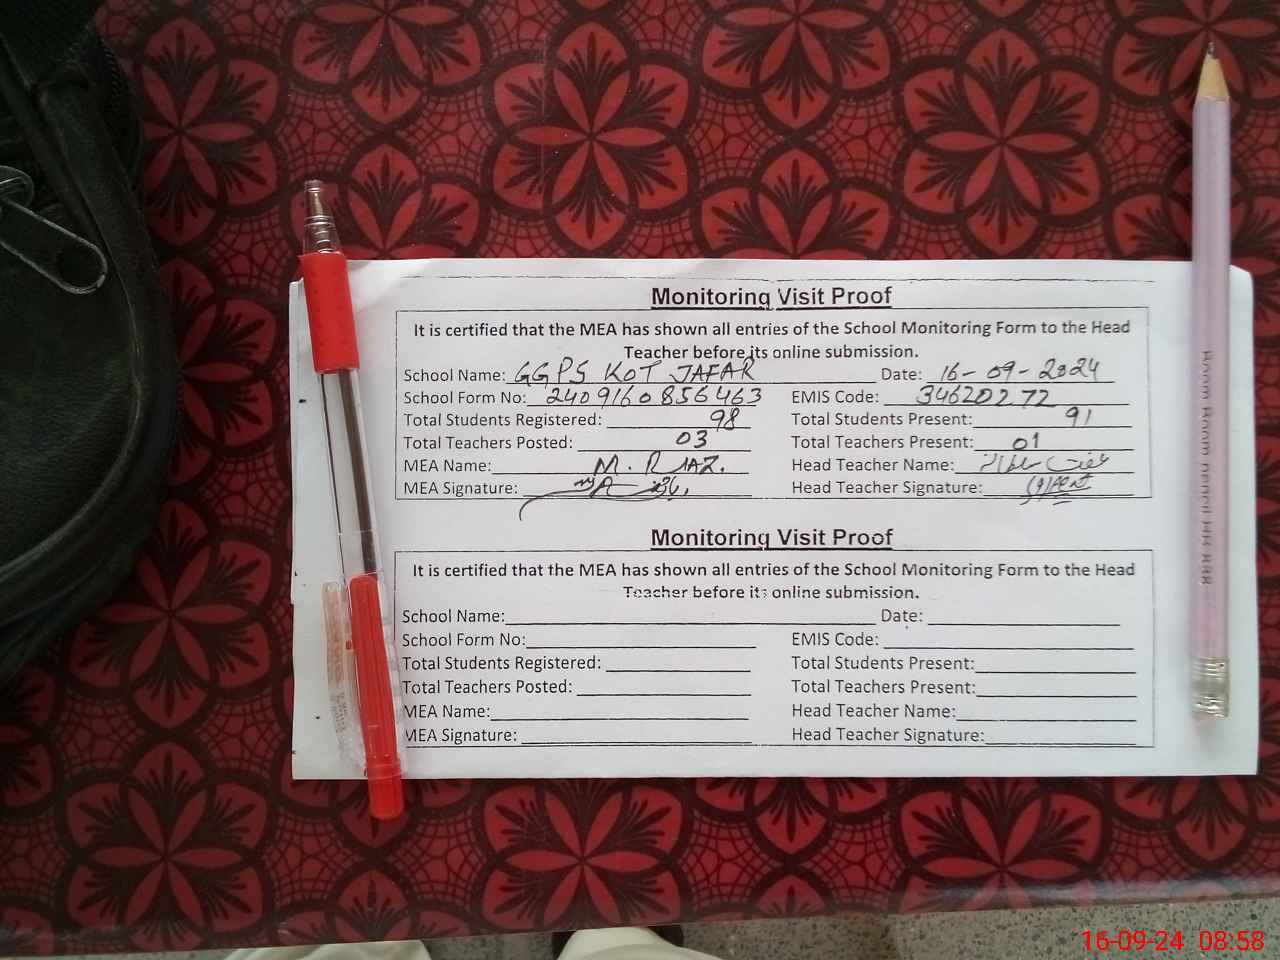 Monitoring Visit Proof
It is certified that the MEA has shown all entries of the School Monitoring Form to the Head
Teacher before its online submission.
School Name: GGPS KOT JAFAR Date: 16-09-2024
School Form No: 2409160856463 EMIS Code: 34620272
Total Students Registered: 98 Total Students Present: 91
Total Teachers Posted: 03 Total Teachers Present: 01
MEA Name: M. RIAZ. Head Teacher Name:
MEA Signature: Head Teacher Signature:
Monitoring Visit Proof
It is certified that the MEA has shown all entries of the School Monitoring Form to the Head
Teacher before its online submission.
School Name: Date:
School Form No: EMIS Code:
Total Students Registered: Total Students Present:
Total Teachers Posted: Total Teachers Present:
MEA Name: Head Teacher Name:
MEA Signature: Head Teacher Signature:
16-09-24 08:58